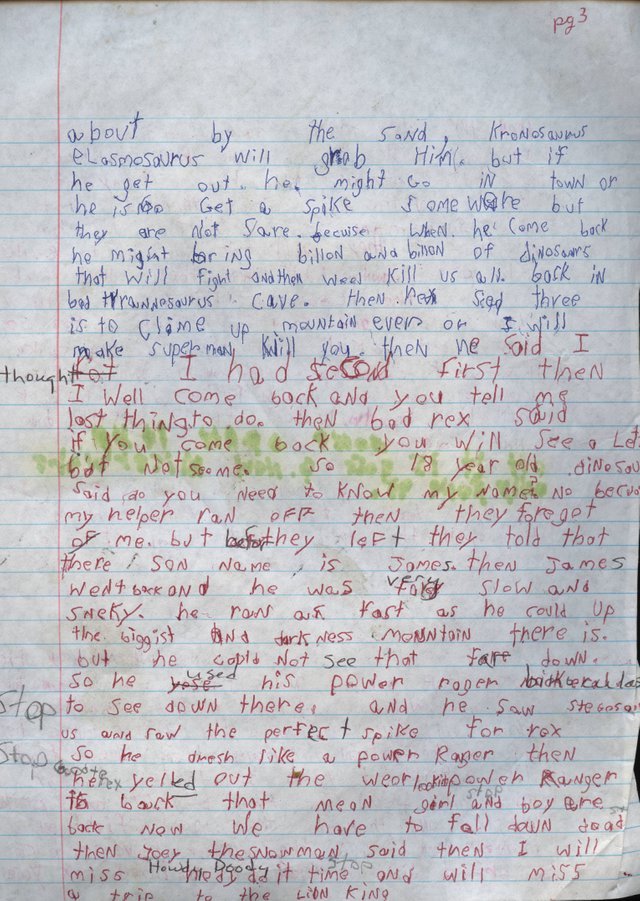 pg 3
about by the sand, Kronosaurus
eLasmosaurus will grab Him. but if
he get out. he. might Go iN town or
he is Get a spike some where but
they are Not sare. becuise when. he come back
he might bring billoN and billoN of diNosaurs
that will fight and then weel kill us all. back iN
bad tyrannesaurus cave. then Rex sied three
is to clime up mountaiN ever or I will
make superman kill you. then he said I
thought I had second first then
I well come back and you tell me
last thing to do. then bad rex said
if you come back you will see a Let
but Not some. so 18 year old. diNosau
said do you Need to kNow my Name? No becus
my helper ran off then they forgot
of me. but before they left they told that
there son Name is James. then James
went back and he was very slow and
sneky. he ran as fast as he could up
the biggist and darkness mountain there is.
but he could Not see that fare down.
so he yose used his power roger
Stop to see down there. and he saw stegosar
us and saw the perfect spike for rex
Stop so he dresh like a power Rager then
he rex yelled out the power Ranger
is back that mean girl and boy are stop
back Now we have to fall down dead
then Joey the snowman said then I will
miss Howdy Doody it time and will miss stop
a trip to the Lion King